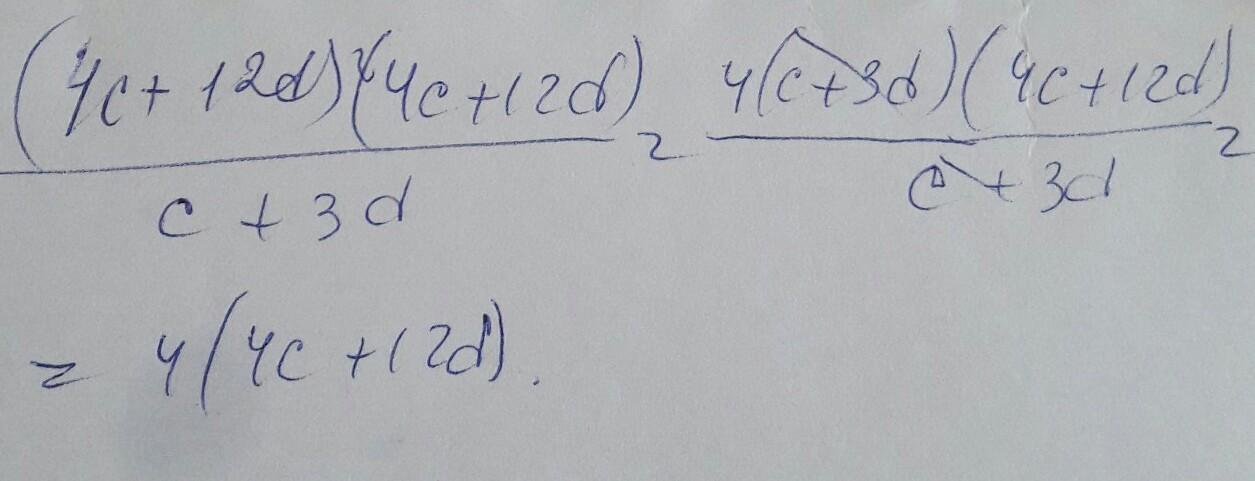 (4c+12d)(4c+12d) / c+3d = 4(c+3d)(4c+12d) / c+3d =
= 4(4c+12d).